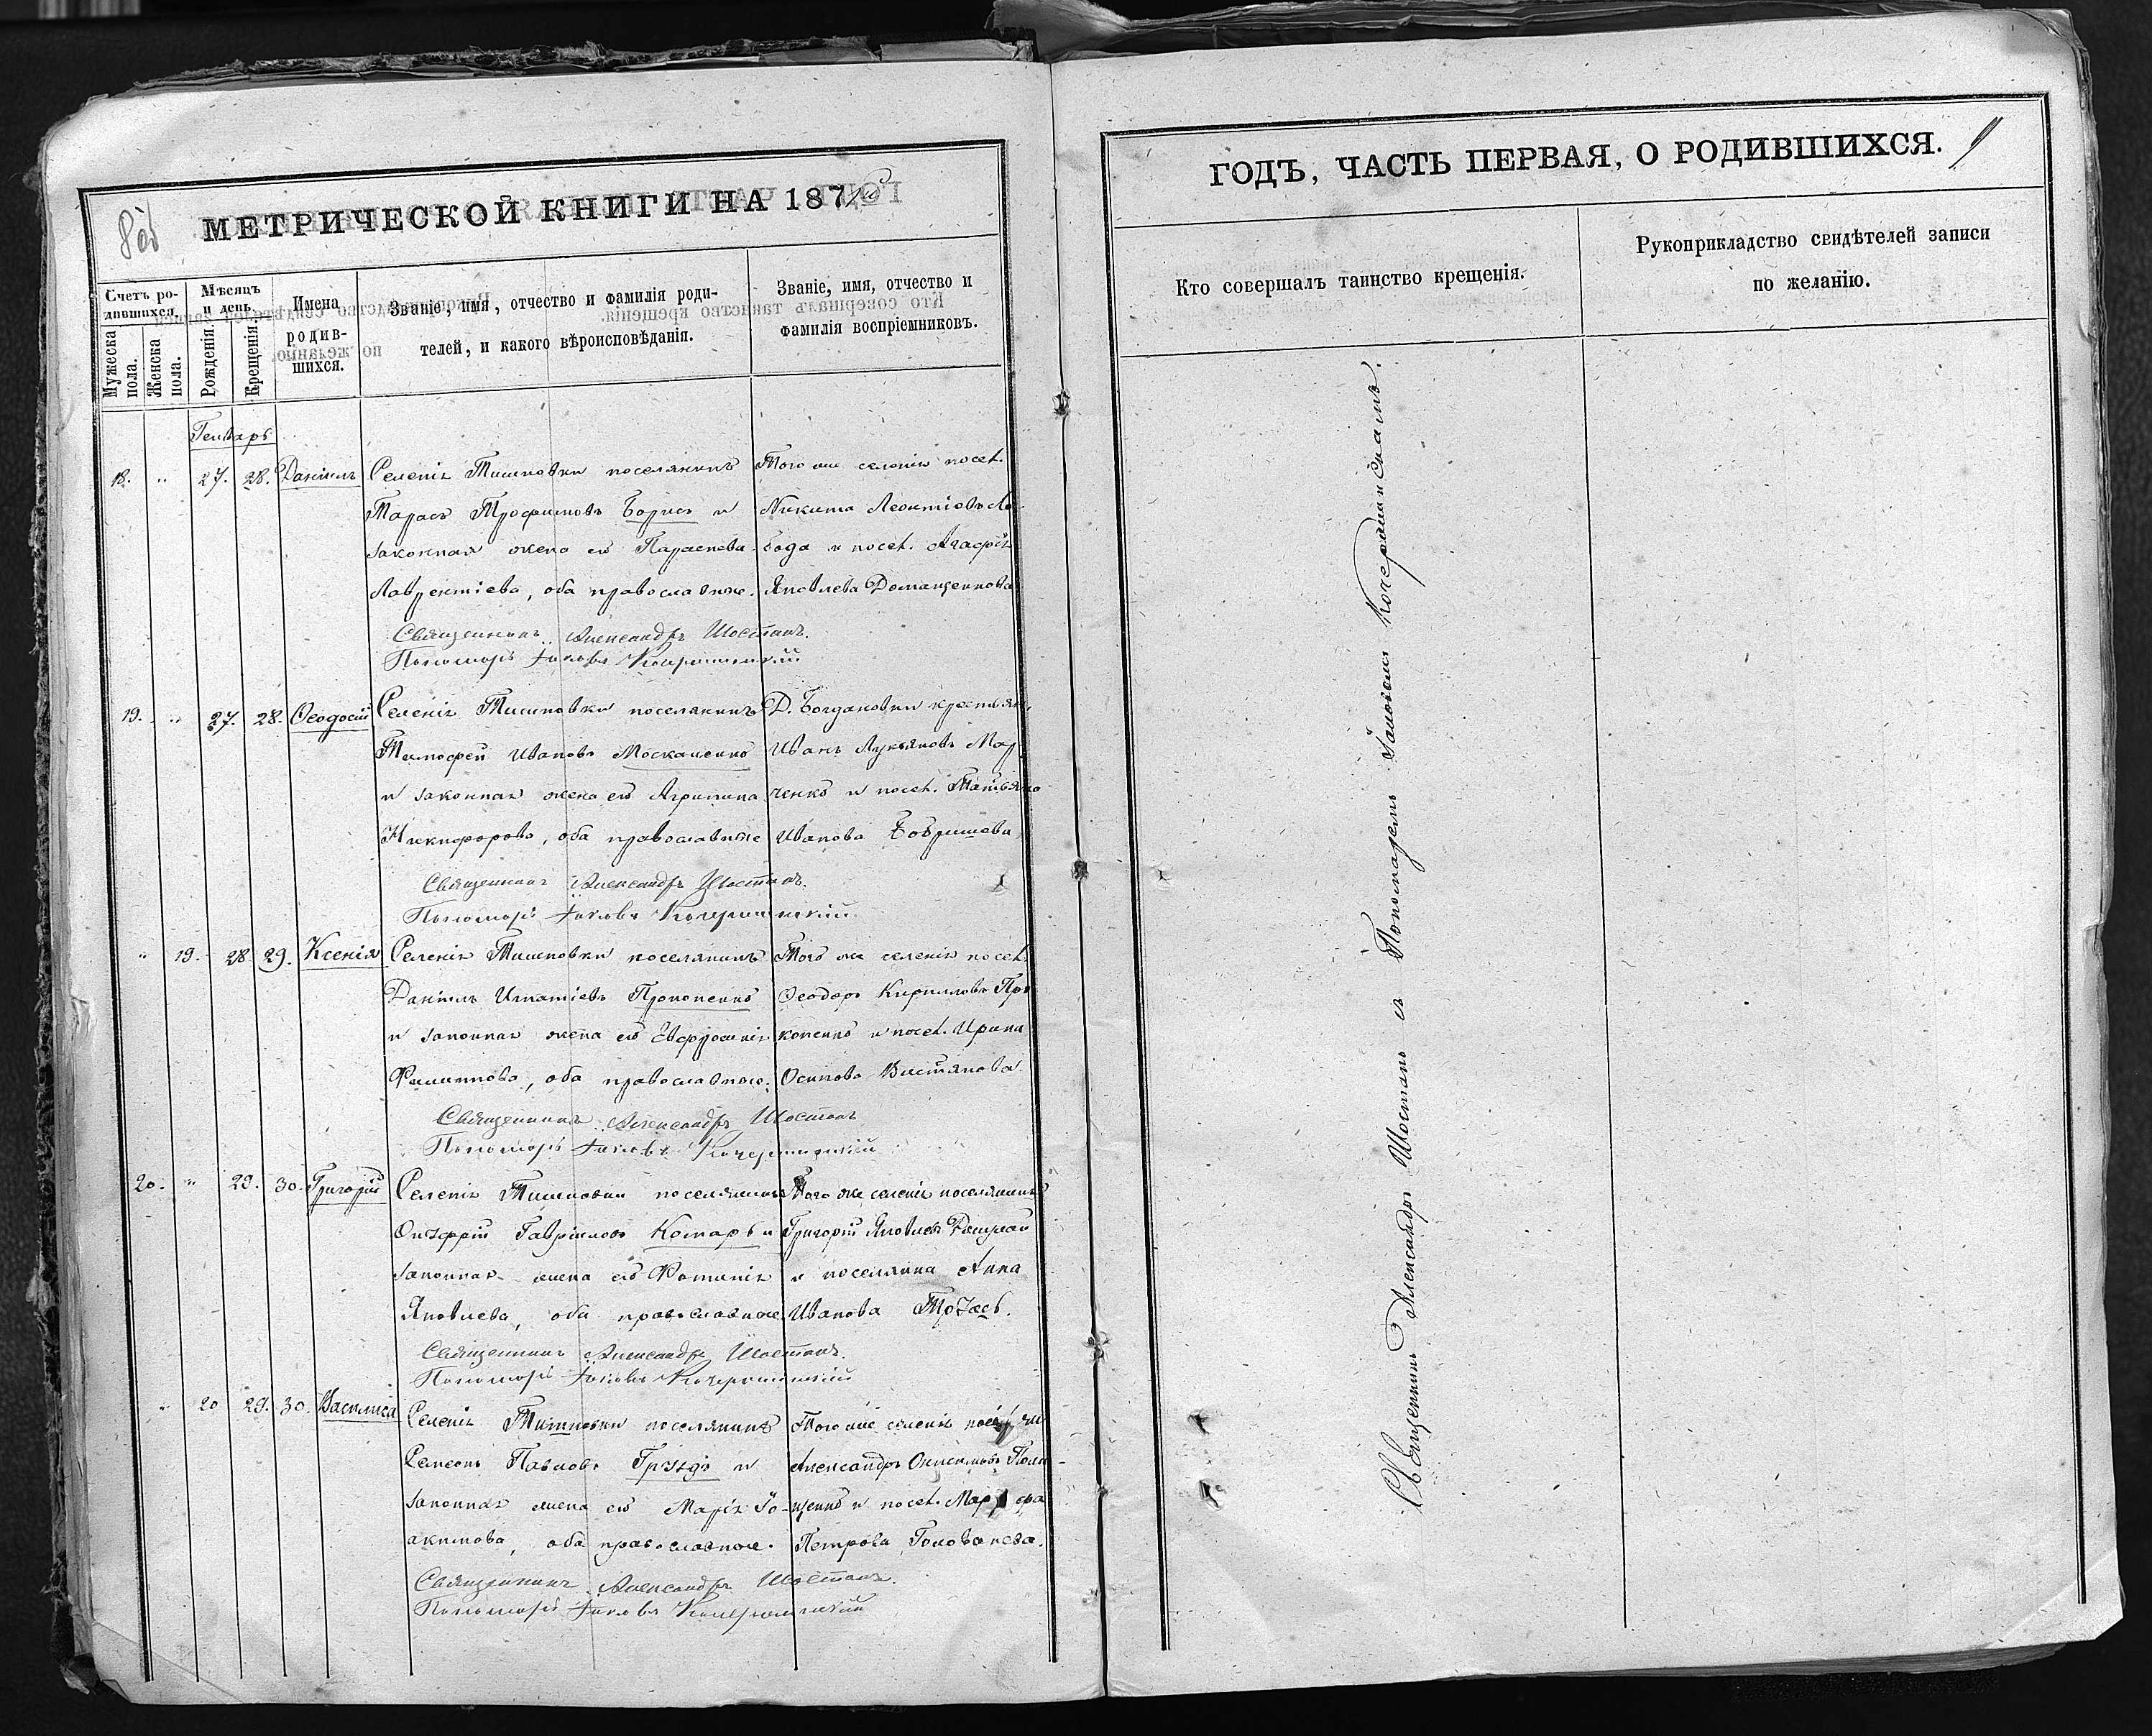 МЕТРИЧЕСКОЙ КНИГИ НА 187
Счетъ ро-
дившихся.
Мужеска пола.
Женска пола.
Мѣсяцъ
и день
Рожденія.
Крещенія.
Имена
родив-
шихся.
Званіе, имя, отчество и фамилія роди-
телей, и какого вѣроисповѣданія.
Званіе, имя, отчество и
фамилія воспріемниковъ.
Генварь
18. " 27. 28. Даніилъ Селенія Тишковки поселянинъ Того же селенія посел.
Тарасъ Трофимовъ Борисъ и Никита Леонтіевъ Ло-
законная жена его Параскева бода и посел. Агафія
Лаврентіева, оба православные. Яковлева Доманценкова
Священникъ Александръ Шостакъ.
Пономарь Іаковъ
19. " 27. 28. Ѳеодосій Селенія Тишковки поселянинъ Д. Богдановки крестьян.
Тимофей Ивановъ Москаленко Иванъ Лукьяновъ Мар-
и законная жена его Агрипина ченко и посел. Татьяна
Никифорова, оба православные Иванова Бобришева
Священникъ Александръ Шостакъ.
Пономарь Іаковъ
" 19. 28 29. Ксенія Селенія Тишковки поселянинъ Того же селенія посел.
Даніилъ Игнатіевъ Прокопенко Ѳеодоръ Кирилловъ Про-
и законная жена его Евфросинія копенко и посел. Ирина
Филиппова, оба православные. Осипова
Священникъ Александръ Шостакъ
Пономарь Іаковъ
20. " 29. 30. Григорій Селенія Тишковки поселянинъ Того же селенія поселянинъ
Онуфрій Гавріиловъ Комаръ и Григорій Яковлевъ
законная жена его Фотинія и поселянка Анна
Яковлева, оба православные Иванова
Священникъ Александръ Шостакъ.
Пономарь Іаковъ
" 20 29. 30. Василиса Селенія Тишковки поселянинъ Того же селенія посел.
Семенъ Павловъ и Александръ Онисимовъ
законная жена его Марія Іо- и посел. Марфа
акимова, оба православные. Петрова
Священникъ Александръ Шостакъ.
Пономарь Іаковъ
ГОДЪ, ЧАСТЬ ПЕРВАЯ, О РОДИВШИХСЯ.
Кто совершалъ таинство крещенія.
Рукоприкладство свидѣтелей записи
по желанію.
Священникъ Александръ Шостакъ съ Пономаремъ Іаковомъ